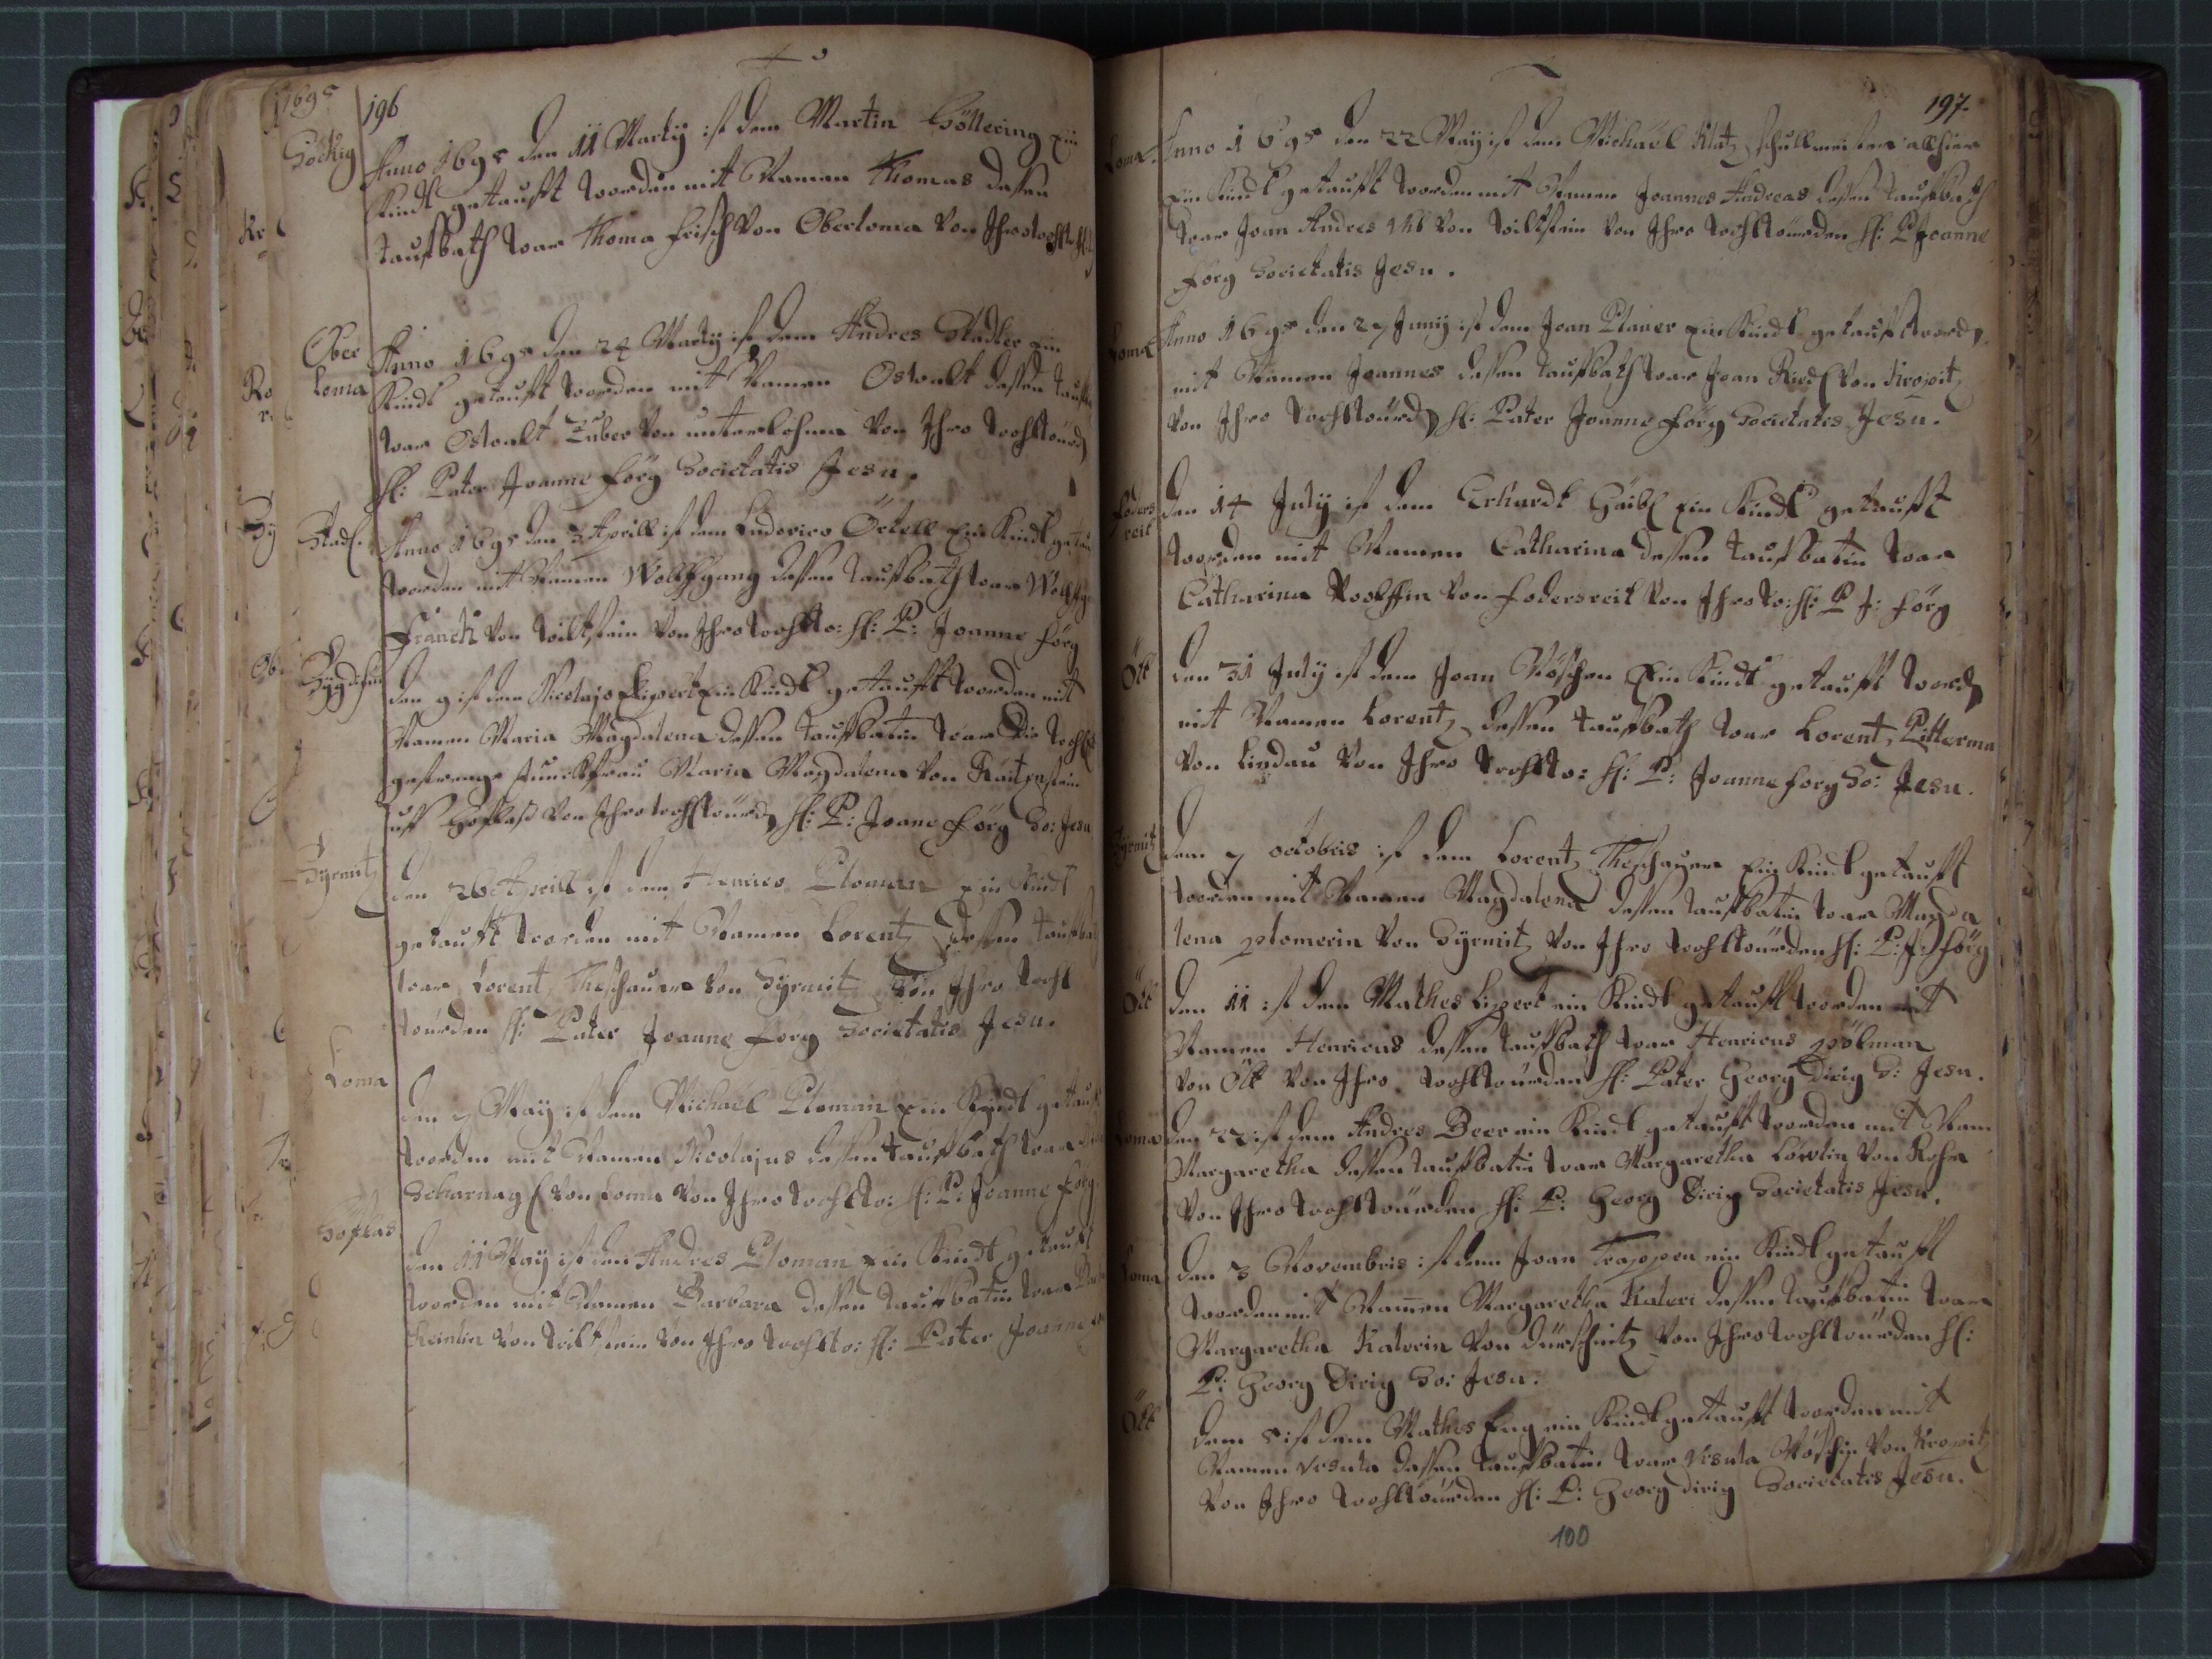 1695
196
Göckig
Anno 1695 den 11 Martij ist dem Martin Höllering ein
Kindl getaufft worden mit Namen Thomas dessen
tauffbath war Thoma frisch von Oberloma von Ihro
Ober
Loma
Anno 1695 den 24 Martij ist dem Andres Stadler ein
Kindl getaufft worden mit Namen Oswalt dessen
war Oswalt Zuber von unterlohma von Ihro wohlwürd
H: Pater Joanne förg Societatis Jesu.
Stadl.
Anno 1695 den 3 Aprill ist dem Ludovico Örtell Ein Kindl
worden mit Namen Wolffgang dessen tauffbath war
Franck von wiltstein von Ihro wohlw: H: P: Joanne förg
den 9 ist dem Nicolajo Ein Kindl getaufft worden mit
Namen Maria Magdalena dessen tauffbatin war die
gestrenge Junckfrau Maria Magdalena von
auff Hoflaß von Ihro wohlwürd H: P: Joane förg So: Jesu
Syrmitz
den 26 Aprill ist dem Ploman ein Kindl
getaufft worden mit Namen Lorentz dessen
war Lorentz Theschauer von Syrmitz von Ihro wohl
würden H: Pater Joanne förg Societatis Jesu.
Loma
den 7 May ist dem Michael Ploman ein Kindl
worden mit Namen Nicolajus dessen tauffbath war
Scharnagl von Loma von Ihro wohlw: H: P: Joanne förg.
Hoflas
den 11 May ist dem Andres Ploman ein Kindl getaufft
worden mit Namen Barbara dessen tauffbatin war
von wiltstein von Ihro wohlw: H: Pater Joanne
197.
Loma
Anno 1695 den 22 May ist dem Michaël Klatz schullmeister allhier
ein Kindl getaufft worden mit Namen Joannes Andreas dessen tauffbath
war Joan Andres von wiltstein von Ihro wohlwürden H: P Joanne
förg Societatis Jesu.
Loma
Anno 1695 den 27 Junij ist dem Joan Planer ein Kindl getaufft word
mit Namen Joannes dessen tauffbath war Joan Riedl von Kropitz
von Ihro wohlwürd H: Pater Joanne förg Societatis Jesu.
foders
reit
den 14 July ist dem Erhardt Gaibl ein Kindl getaufft
worden mit Namen Catharina dessen tauffbatin war
Catharina Wolffin von fodersreit von Ihro w: H: P J: förg
Ölt
den 31 July ist dem Joan Röschen Ein Kindl getaufft word
mit Namen Lorentz dessen tauffbath war Lorentz Pitterma
von Lindau von Ihro wohlw: H: P: Joanne forg So: Jesu.
Syrmitz
dem 7 octobris ist dem Lorentz Theschauer Ein Kindl getaufft
worden mit Namen Magdalena dessen tauffbatin war Magda
lena plomerin von Syrmitz von Ihro wohlwürden H: P: J: förg
Ölt
den 11 ist dem Mathes Lipert ein Kindl getaufft worden mit
Namen Henricus dessen tauffbath war Henricus pölman
von Ölt von Ihro wohlwürden H: Pater Georg Dirig S: Jesu.
Loma
den 22 ist dem Andres Beer ein Kindl getaufft worden mit Nam
Margaretha dessen tauffbatin war Margaretha Löwlin von Rohr
von Ihro wohlwürden H: P: Georg Dirig Societatis Jesu.
Loma
den 3 Novembris ist dem Joan Trappen ein Kindl getaufft
worden mit Namen Margaretha Kateri dessen tauffbatin war
Margaretha Katerin von dürschnitz von Ihro wohlwürden H:
P: Georg Dirig So: Jesu.
Ölt
dem 5 ist dem Mathes Eng ein Kindl getaufft worden mit
Namen Vrsula dessen tauffbatin war Vrsula Röschin von Kropitz
von Ihro wohlwürden H: P: Georg dirig Societatis Jesu.
100